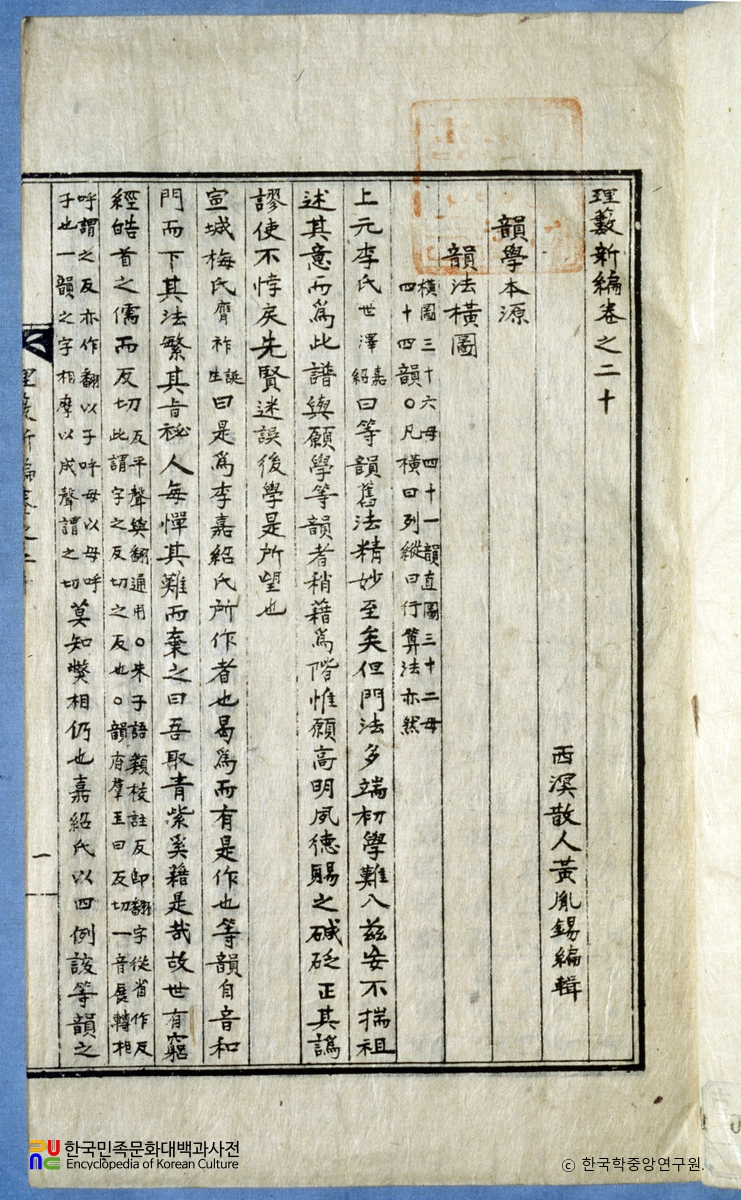 理藪新編卷之二十
西溟散人黃胤錫編輯
韻學本源
韻法橫圖
橫圖三十六母四十一韻直圖三十二母
四十四韻○凡橫曰列縱曰行算法亦然
上元李氏世澤嘉紹曰等韻舊法精妙至矣但門法多端初學難入玆妄不揣祖
述其意而爲此譜與願學等韻者稍藉爲階惟願高明夙德賜之碱砭正其譌
謬使不悖戾先賢迷誤後學是所望也
宣城梅氏膺祚誕生曰是爲李嘉紹氏所作者也曷爲而有是作也等韻自音和
門而下其法繁其旨祕人每憚其難而棄之曰吾取青紫奚藉是哉故世有窮
經皓首之儒而反切
反平聲與翻通用○朱子語類校註反即翻字從省作反
此謂字之反切之反也○韻府羣玉曰反切一音展轉相
呼謂之反亦作翻以子呼母以母呼
子也一韻之字相摩以成聲謂之切
莫知獘相仍也嘉紹氏以四例該等韻之
理藪新編卷之二十
一
한국민족문화대백과사전
Encyclopedia of Korean Culture
© 한국학중앙연구원.